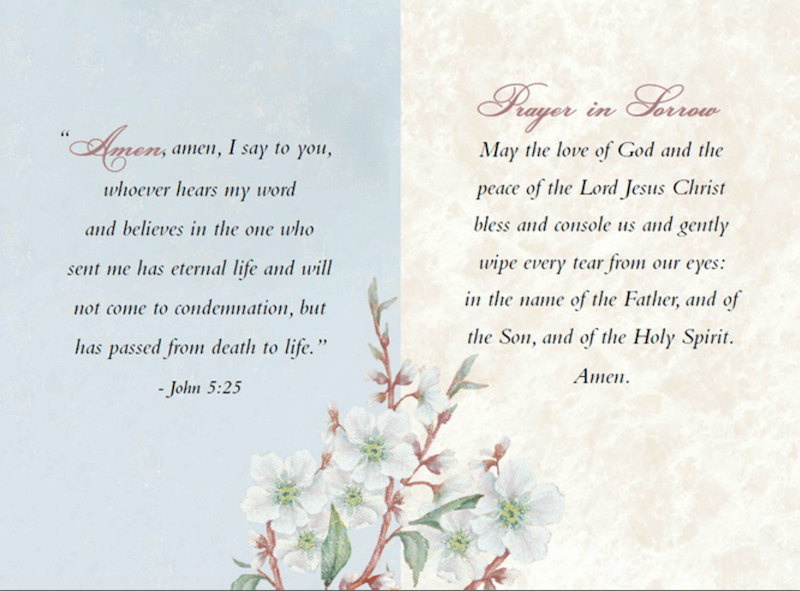 “Amen, amen, I say to you,
whoever hears my word
and believes in the one who
sent me has eternal life and will
not come to condemnation, but
has passed from death to life.”
- John 5:25
Prayer in Sorrow
May the love of God and the
peace of the Lord Jesus Christ
bless and console us and gently
wipe every tear from our eyes:
in the name of the Father, and of
the Son, and of the Holy Spirit.
Amen.